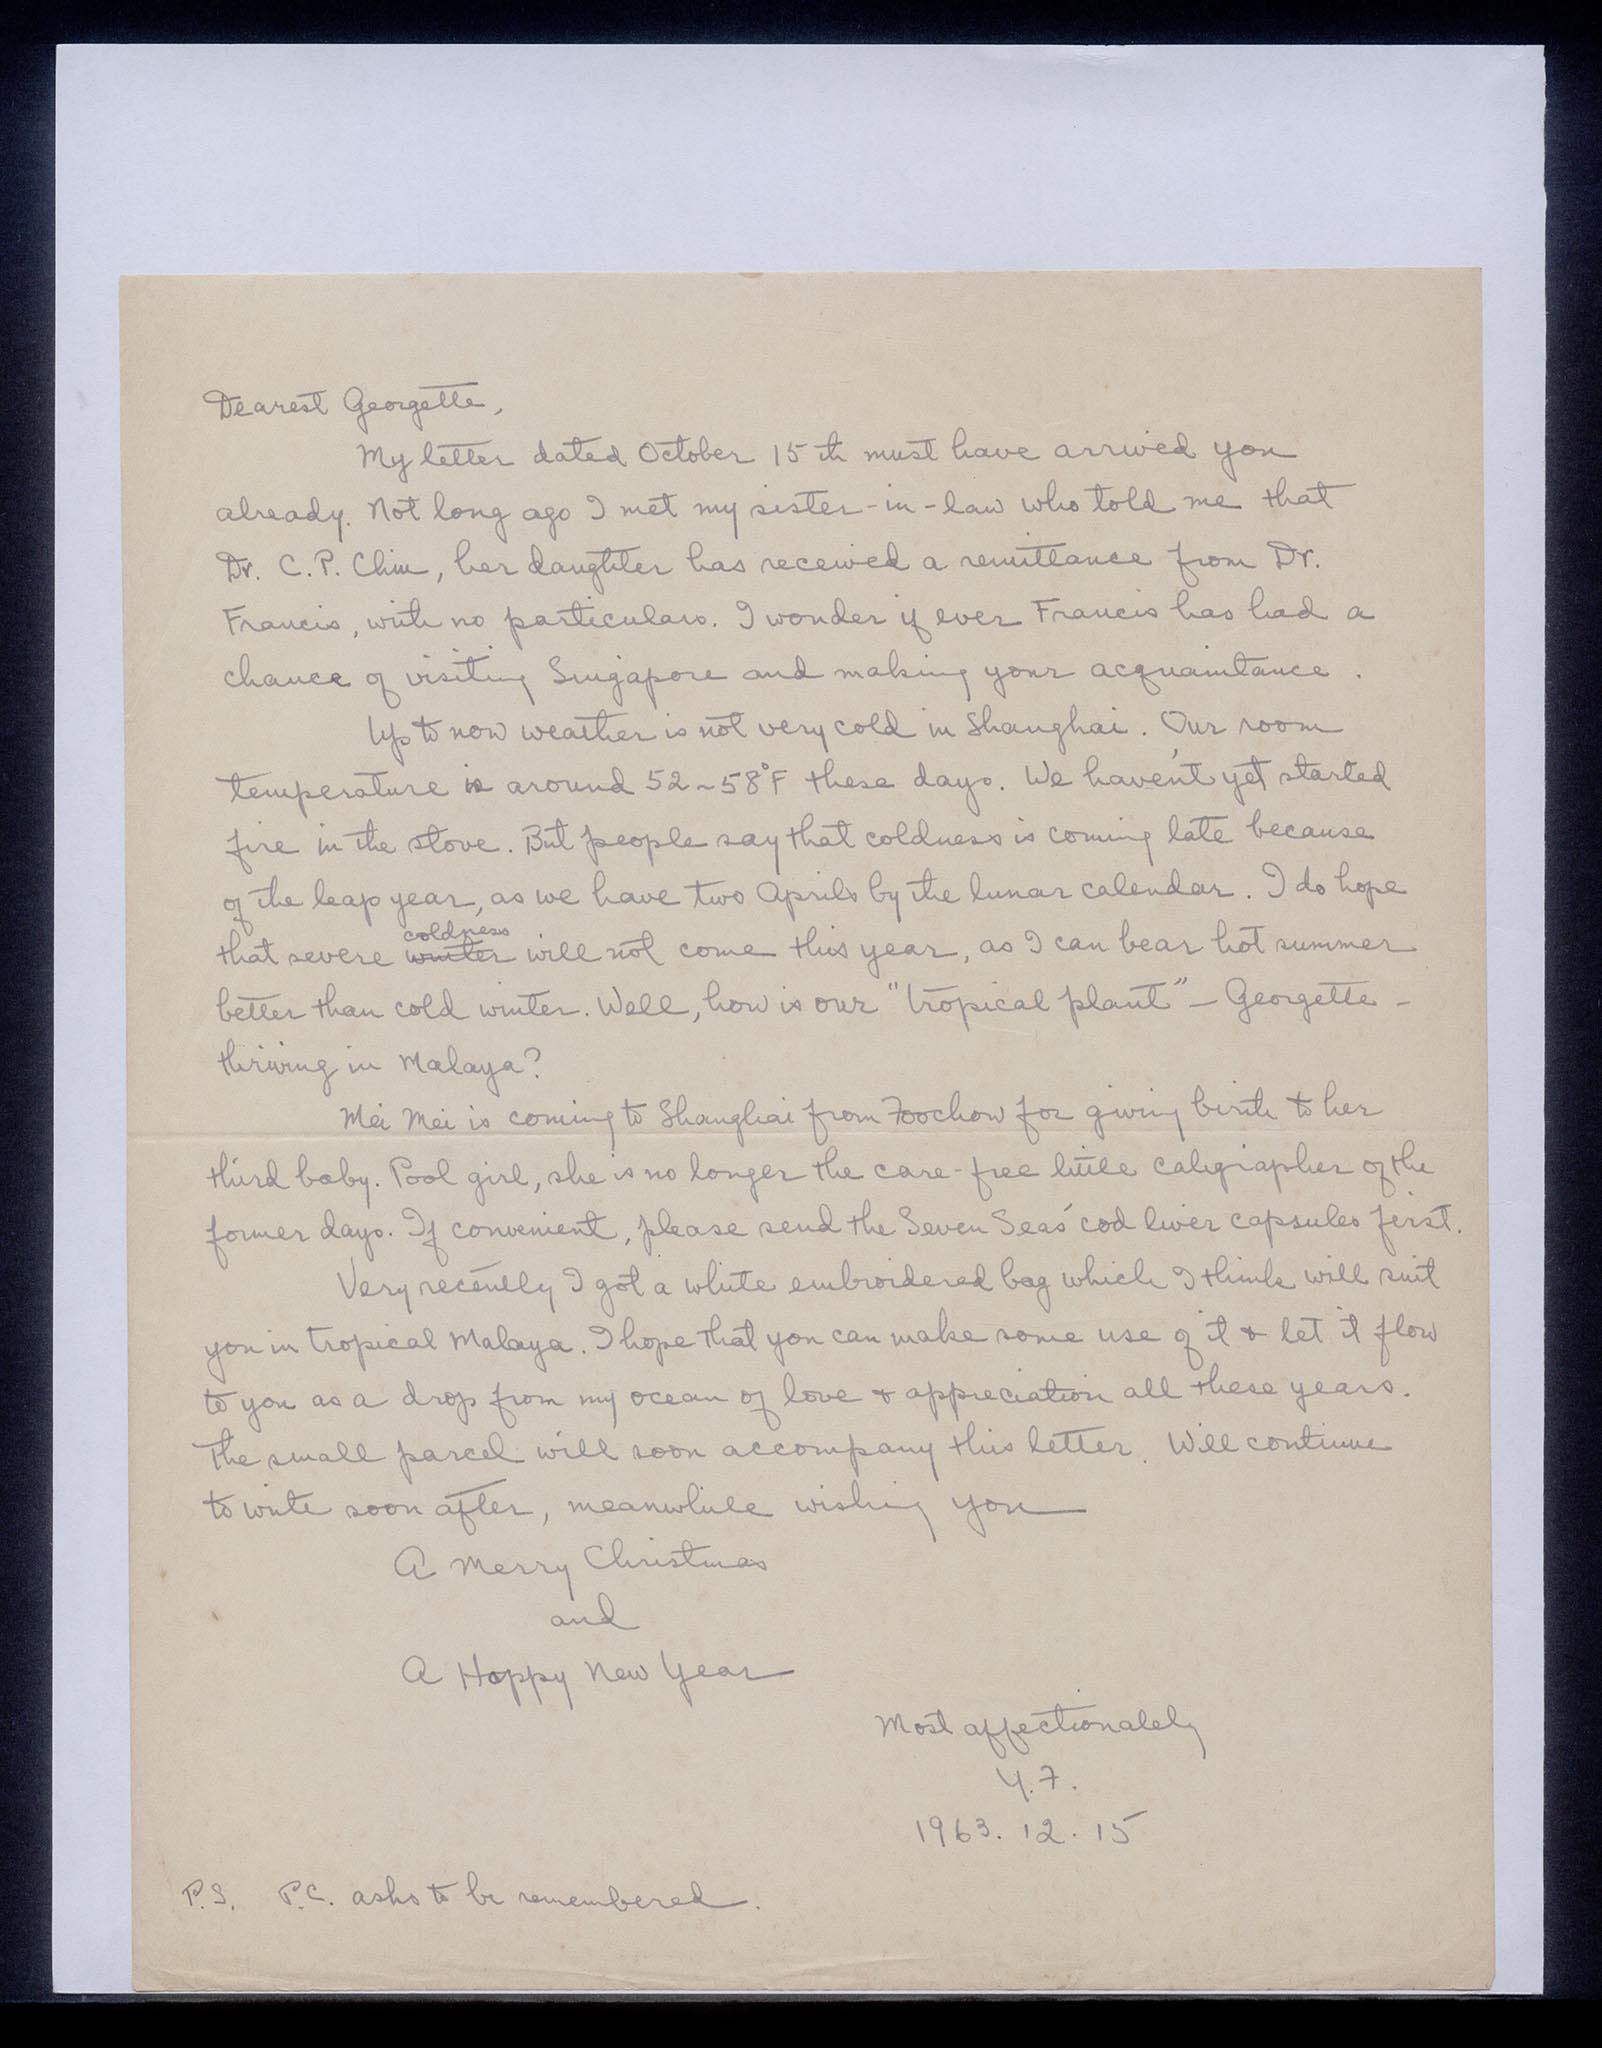 Dearest Georgette,
My letter dated October 15th must have arrived you
already. Not long ago I met my sister-in-law who told me that
Dr. C. P. Chiu, her daughter has received a remittance from Dr.
Francis, with no particulars. I wonder if ever Francis has had a
chance of visiting Singapore and making your acquaintance.
Up to now weather is not very cold in Shanghai. Our room
temperature is around 52~58°F these days. We haven't yet started
fire in the stove. But people say that coldness is coming late because
of the leap year, as we have two Aprils by the lunar calendar. I do hope
coldness
that severe winter will not come this year, as I can bear hot summer
better than cold winter. Well, how is our "tropical plant" - Georgette -
thriving in Malaya?
Mei Mei is coming to Shanghai from Foochow for giving birth to her
third baby. Pool girl, she is no longer the care-free little caligrapher of the
former days. If convenient, please send the Seven Seas' cod liver capsules first.
Very recently I got a white embroidered bag which I think will suit
you in tropical Malaya. I hope that you can make some use of it & let it flow
to you as a drop from my ocean of love & appreciation all these years.
The small parcel will soon accompany this letter. Will continue
to write soon after, meanwhile wishing you
A Merry Christmas
and
A Happy New Year
Most affectionately
Y. F.
1963. 12. 15
P.S. P.C. asks to be remembered.